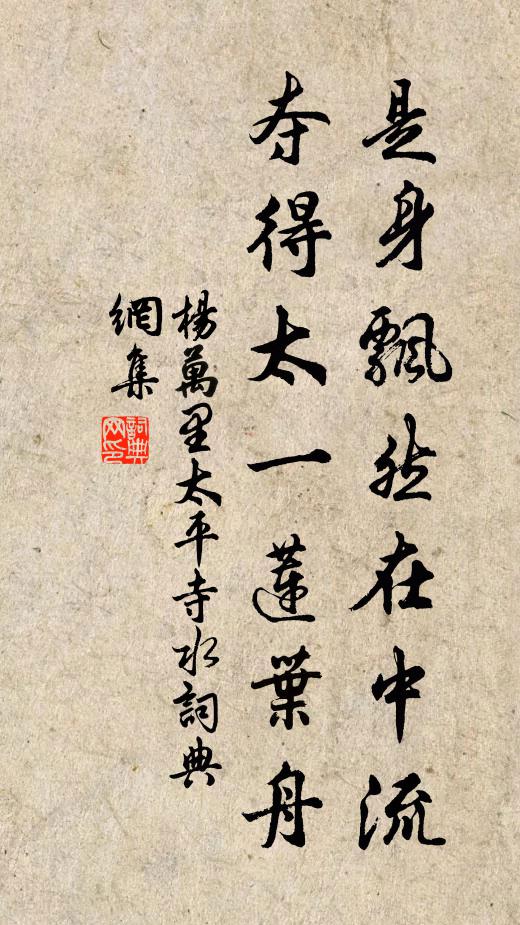 是身飄然在中流
夺得太一蓮葉舟
楊萬里太平寺水詞典
網集
詞典
网印